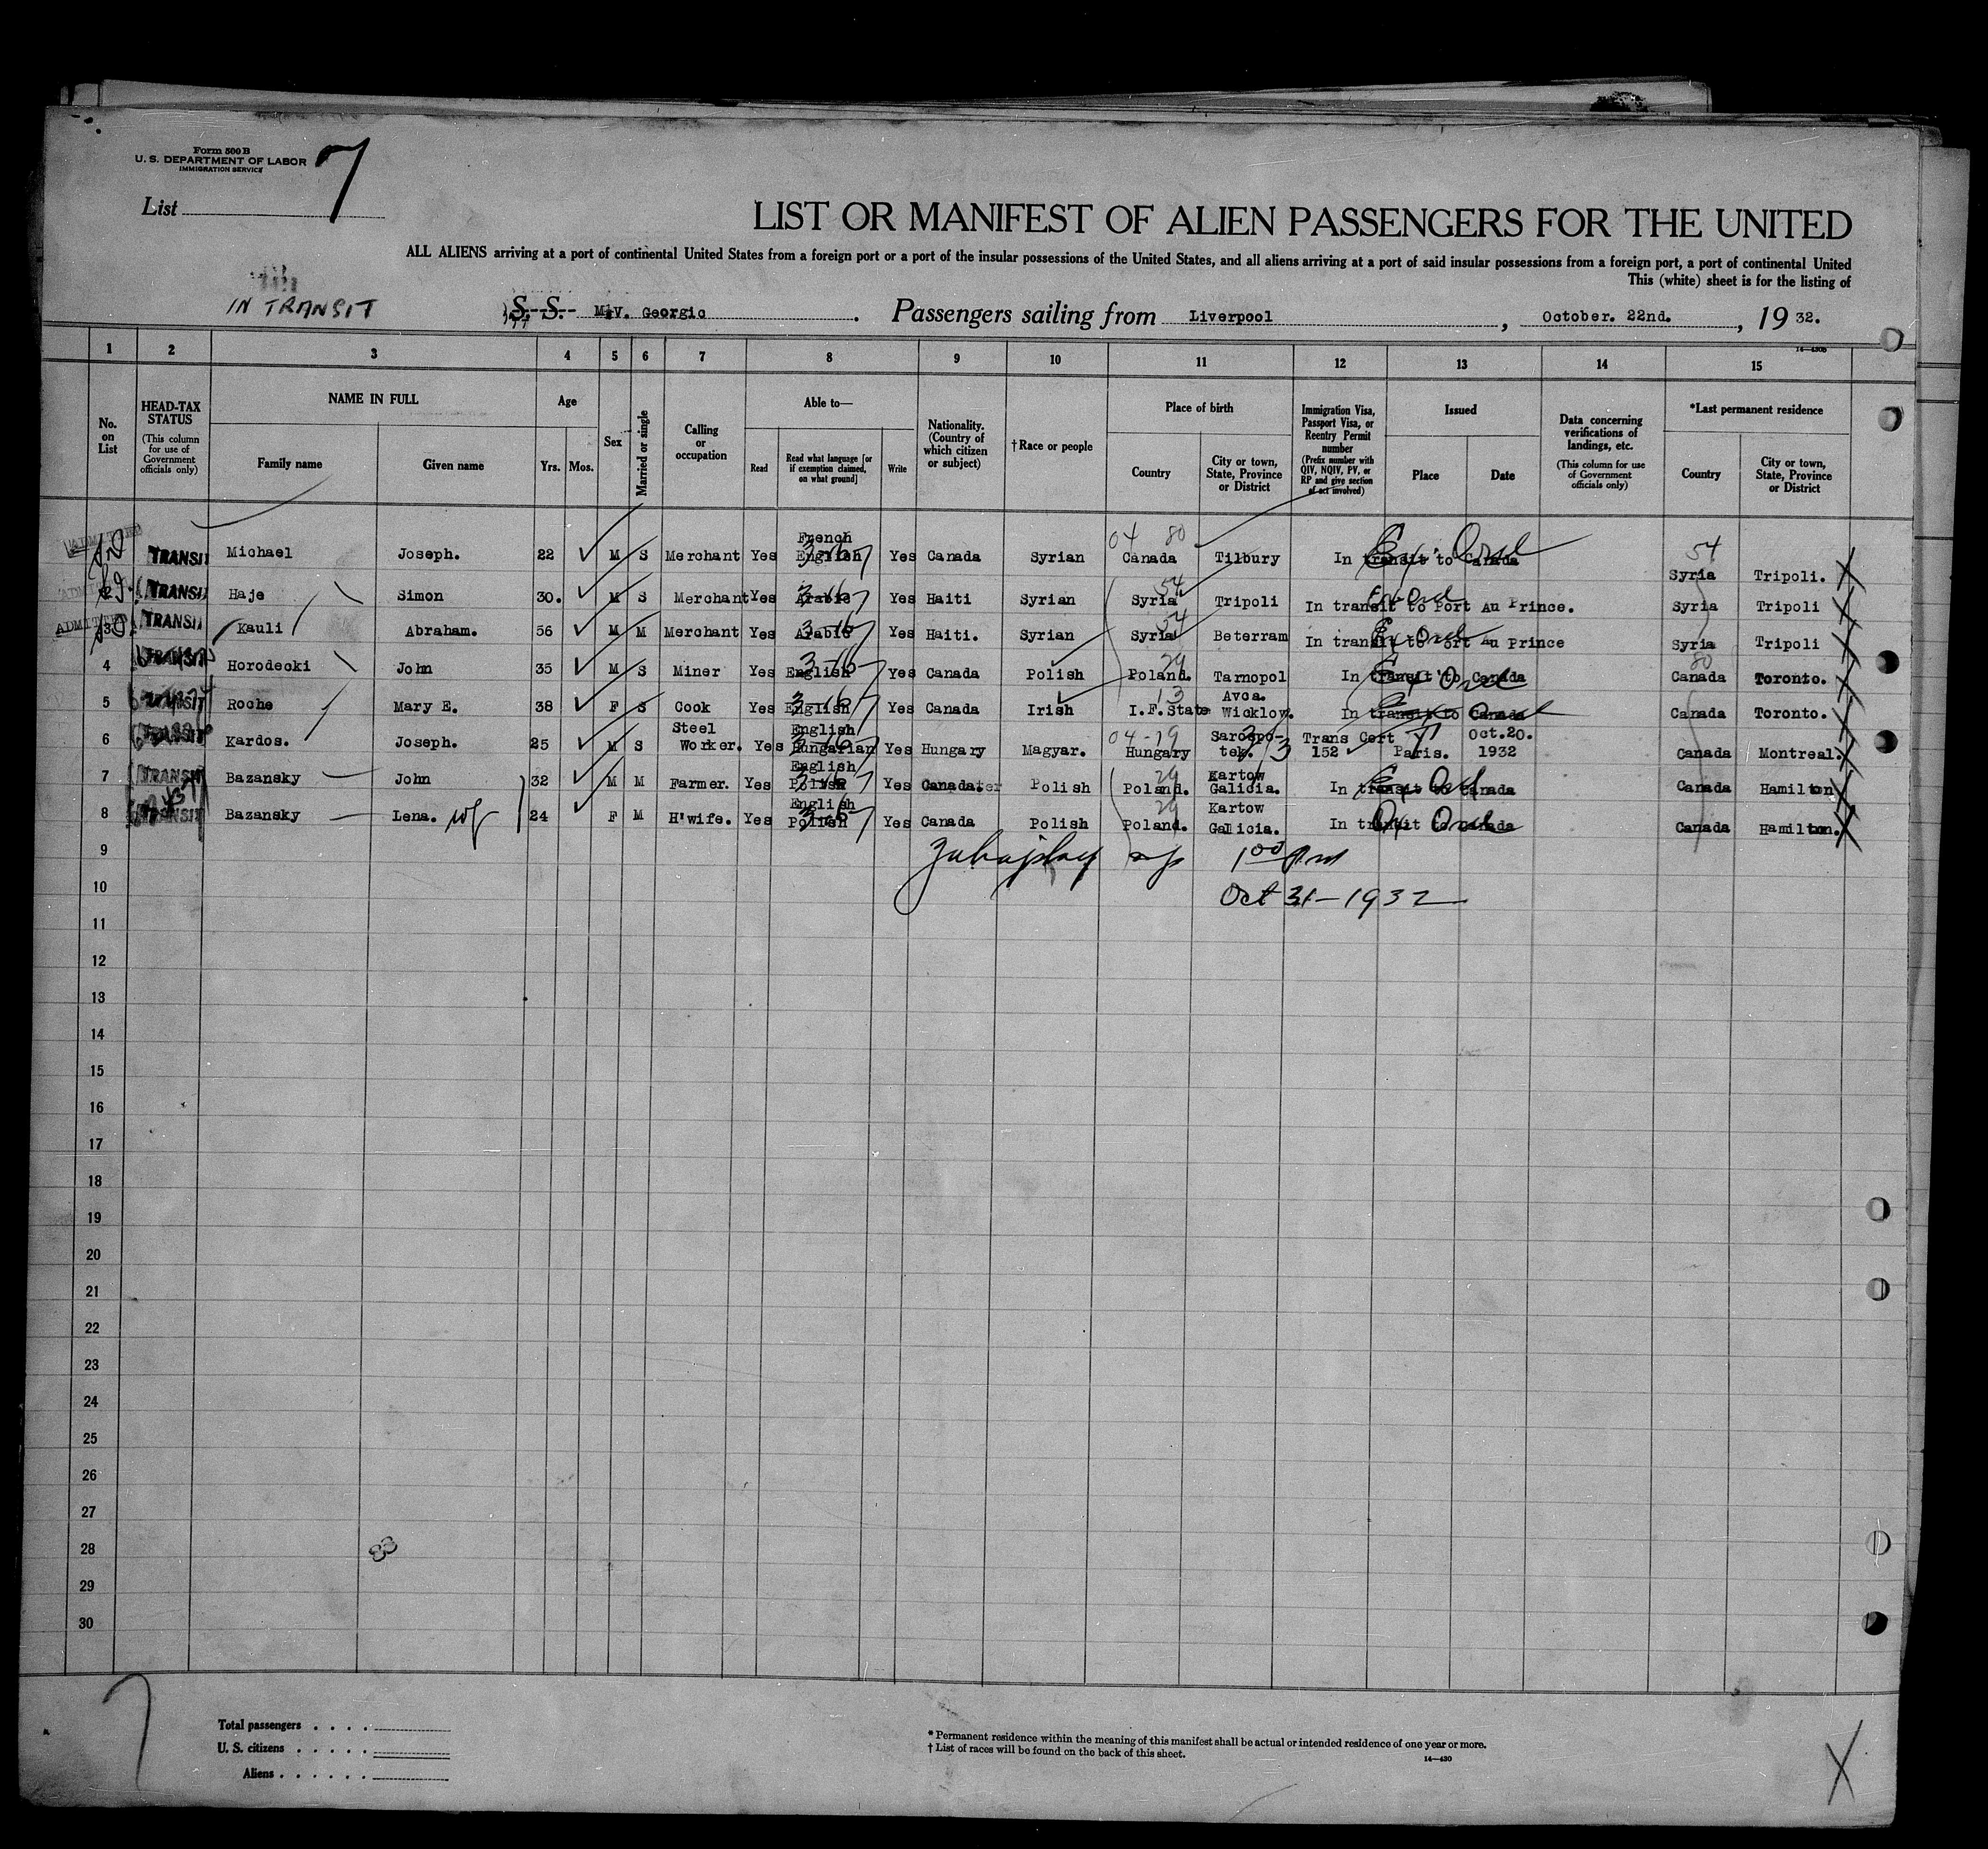 Form 500 B
U. S. DEPARTMENT OF LABOR
IMMIGRATION SERVICE
List 7
LIST OR MANIFEST OF ALIEN PASSENGERS FOR THE UNITED
ALL ALIENS arriving at a port of continental United States from a foreign port or a port of the insular possessions of the United States, and all aliens arriving at a port of said insular possessions from a foreign port, a port of continental United
This (white) sheet is for the listing of
IN TRANSIT
S. S. M.V. Georgic. Passengers sailing from Liverpool, October. 22nd., 19 32.
14—430B
1 2 3 4 5 6 7 8 9 10 11 12 13 14 15
No. on List
HEAD-TAX STATUS (This column for use of Government officials only)
NAME IN FULL
Family name
Given name
Age
Yrs. Mos.
Sex
Married or single
Calling or occupation
Able to—
Read
Read what language [or if exemption claimed, on what ground]
Write
Nationality. (Country of which citizen or subject)
†Race or people
Place of birth
Country
City or town, State, Province or District
Immigration Visa, Passport Visa, or Reentry Permit number (Prefix number with QIV, NQIV, PV, or RP and give section of act involved)
Issued
Place
Date
Data concerning verifications of landings, etc. (This column for use of Government officials only)
*Last permanent residence
Country
City or town, State, Province or District
ADMITTED TRANSIT Michael Joseph. 22 M S Merchant Yes French English Yes Canada Syrian 04 80 Canada Tilbury In transit to Canada 54 Syria Tripoli. X
2 TRANSIT Haje Simon 30. M S Merchant Yes Arabic Yes Haiti Syrian 54 Syria Tripoli In transit to Port Au Prince. Syria Tripoli X
ADMITTED 3 TRANSIT Kauli Abraham. 56 M M Merchant Yes Arabic Yes Haiti. Syrian 54 Syria Beterram In transit to Port Au Prince Syria Tripoli X
4 TRANSIT Horodecki John 35 M S Miner Yes English Yes Canada Polish 29 Poland. Tarnopol In transit to Canada 80 Canada Toronto. X
5 TRANSIT Roche Mary E. 38 F S Cook Yes English Yes Canada Irish 13 I.F.State Avoca. Wicklow. In transit to Canada Canada Toronto. X
6 TRANSIT Kardos. Joseph. 25 M S Steel Worker. Yes English Hungarian Yes Hungary Magyar. 04-19 Hungary Sarospo-tek. Trans Cert 152 Paris. Oct.20. 1932 Canada Montreal. X
7 TRANSIT Bazansky John 32 M M Farmer. Yes English Polish Yes Canada. Polish 29 Poland. Kartow Galicia. In transit to Canada Canada Hamilton X
8 TRANSIT Bazansky Lena. wf 24 F M H'wife. Yes English Polish Yes Canada Polish 29 Poland. Kartow Galicia. In transit to Canada Canada Hamilton. X
9 1 00 Pm
10 Oct 31 - 1932
11
12
13
14
15
16
17
18
19
20
21
22
23
24
25
26
27
28
29
30
83
Total passengers . . . .
U. S. citizens . . . . .
Aliens . . . . . .
* Permanent residence within the meaning of this manifest shall be actual or intended residence of one year or more.
† List of races will be found on the back of this sheet.
14—430
X